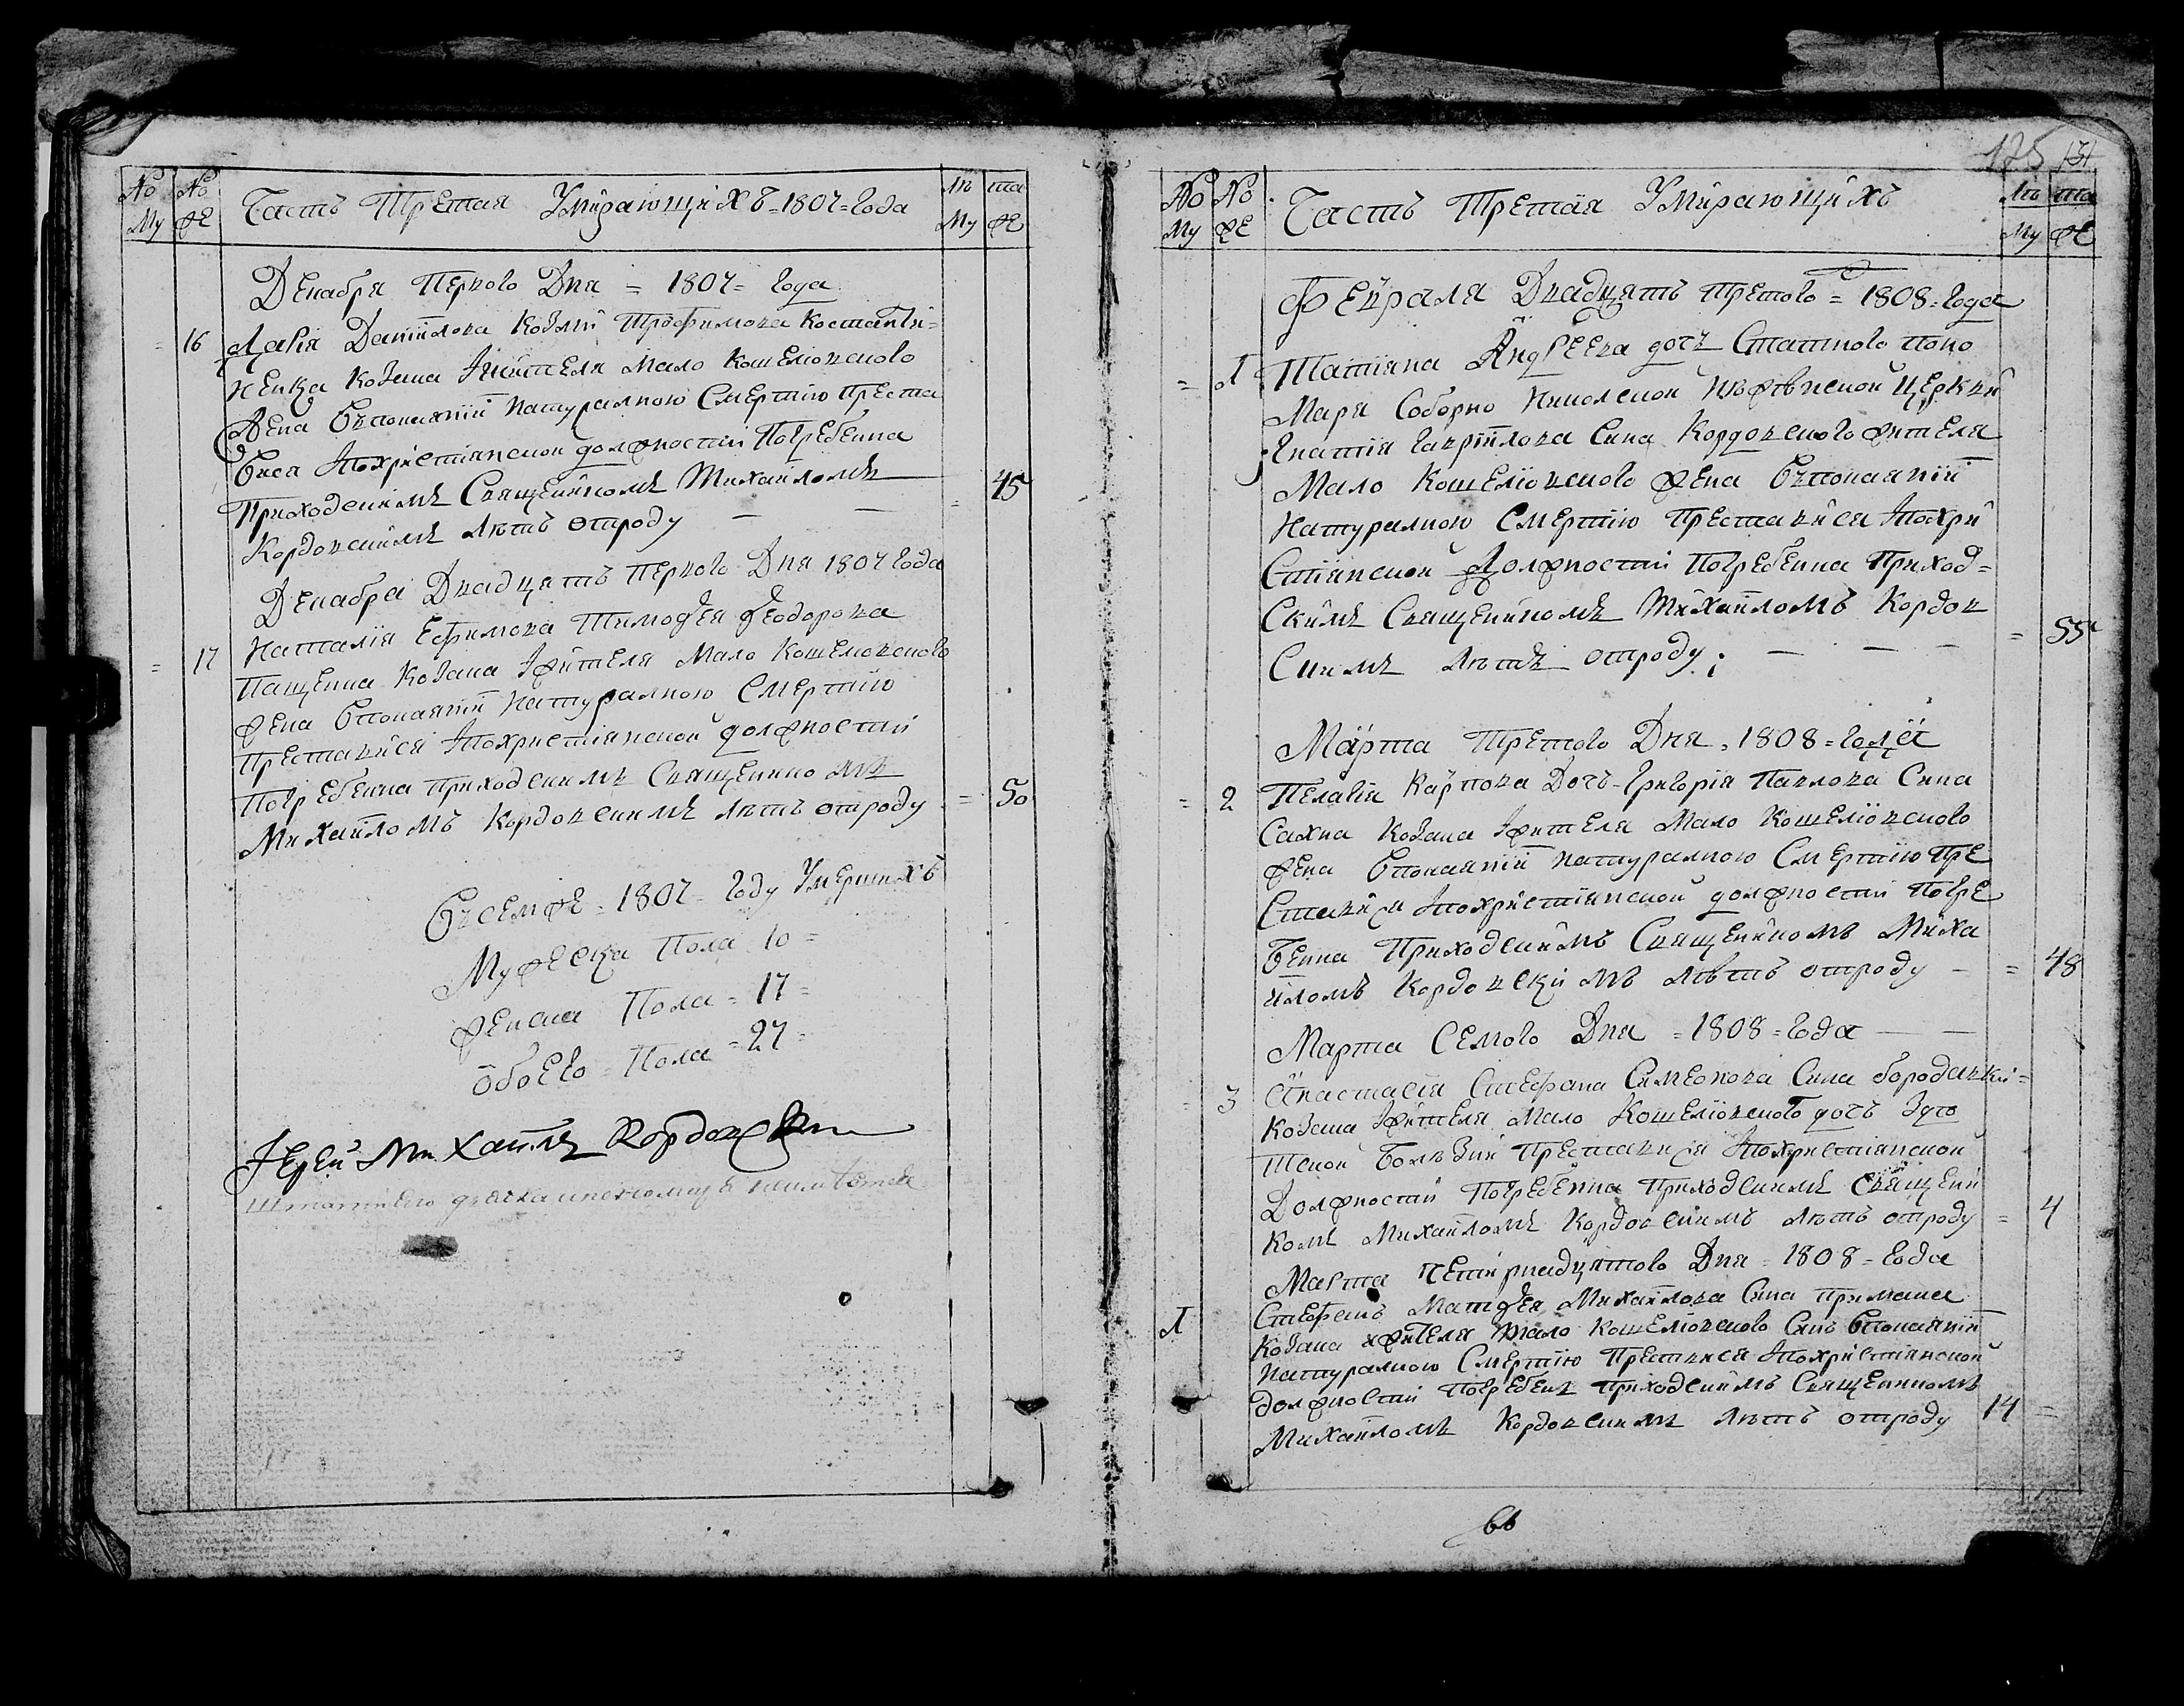 No No Часть Третая Умирающихъ = 1807 = Года лѣ та
Му Же Му Же
Декабря Первого Дня = 1807 = Года
= 16 Дарія Даніилова Козмы Трофимова Костанти=
ненка Козака Жителя Мало Кошеліовского
Жена Впокаяніи Натуралною Смертію Преста
вися Похристіянской должности Погребенна
Приходскимъ Священномъ Михаиломъ
Кордовскимъ лѣтъ отроду — — = 45
Декабра Двадцять первого Дня 1807 Года
= 17 Наталія Ефимова Тимофѣя Феодорова
Пащенка Козака Жителя Мало Кошеловского
Жена Впокаяніи Натуралною Смертію
Преставися Похристіянской должности
Погребенна приходскимъ Священикомъ
Михаиломъ Кордовскимъ лѣтъ отроду = 50
Всемже = 1807 = Году Умершихъ
Мужеска Пола 10 =
Женска Пола = 17 =
Обоего = Пола = 27 =
Іерей Михаилъ Кордовский
175
No No Часть Третая Умирающихъ лѣ та
Му Же Му Же
Февраля Двадцять третого = 1808 = Года
= 1 Татіяна Андреева дочъ Статного поно
маря Соборно Николской Нѣжинской церкви
Игнатія Гавріилова Сина Кордовского жителя
Мало Кошеліовского Жена Впокаяніи
Натуралною Смертію Преставися Похри
Стіянской Должности Погребенна Приход=
Скимъ Священикомъ Михаиломъ Кордов
Скимъ лѣтъ отроду; — — — = 55
Марта Третого Дня = 1808 = года
= 2 Пелагія Карпова Дочъ Григорія Павлова Сина
Сахна Козака Жителя Мало Кошеліовского
Жена Впокаяніи Натуралною Смертію Пре
Ставися Похристіянской должности Погре
бенна Приходскимъ Священикомъ Миха
иломъ Кордовскимъ лѣтъ отроду — = 48
Марта Семого Дня = 1808 = Года — —
= 3 Анастасія Стефана Симеонова Сина бородавки=
Козака Жителя Мало Кошеліовского дочъ
Болѣзни Преставися Похристіянской
Должности Погребенна Приходскимъ Священи
комъ Михаиломъ Кордовскимъ лѣтъ отроду = 4
Марта Четирнадцятого Дня = 1808 = Года
1 Стефанъ Матфѣя Михаилова Сина Примака
Козака жителя Мало Кошеліовского Синъ Впокаяніи
Натуралною Смертію Преставися Похристіянской
должности Погребенъ приходскимъ Священикомъ
Михаиломъ Кордовскимъ лѣтъ отроду 14 =